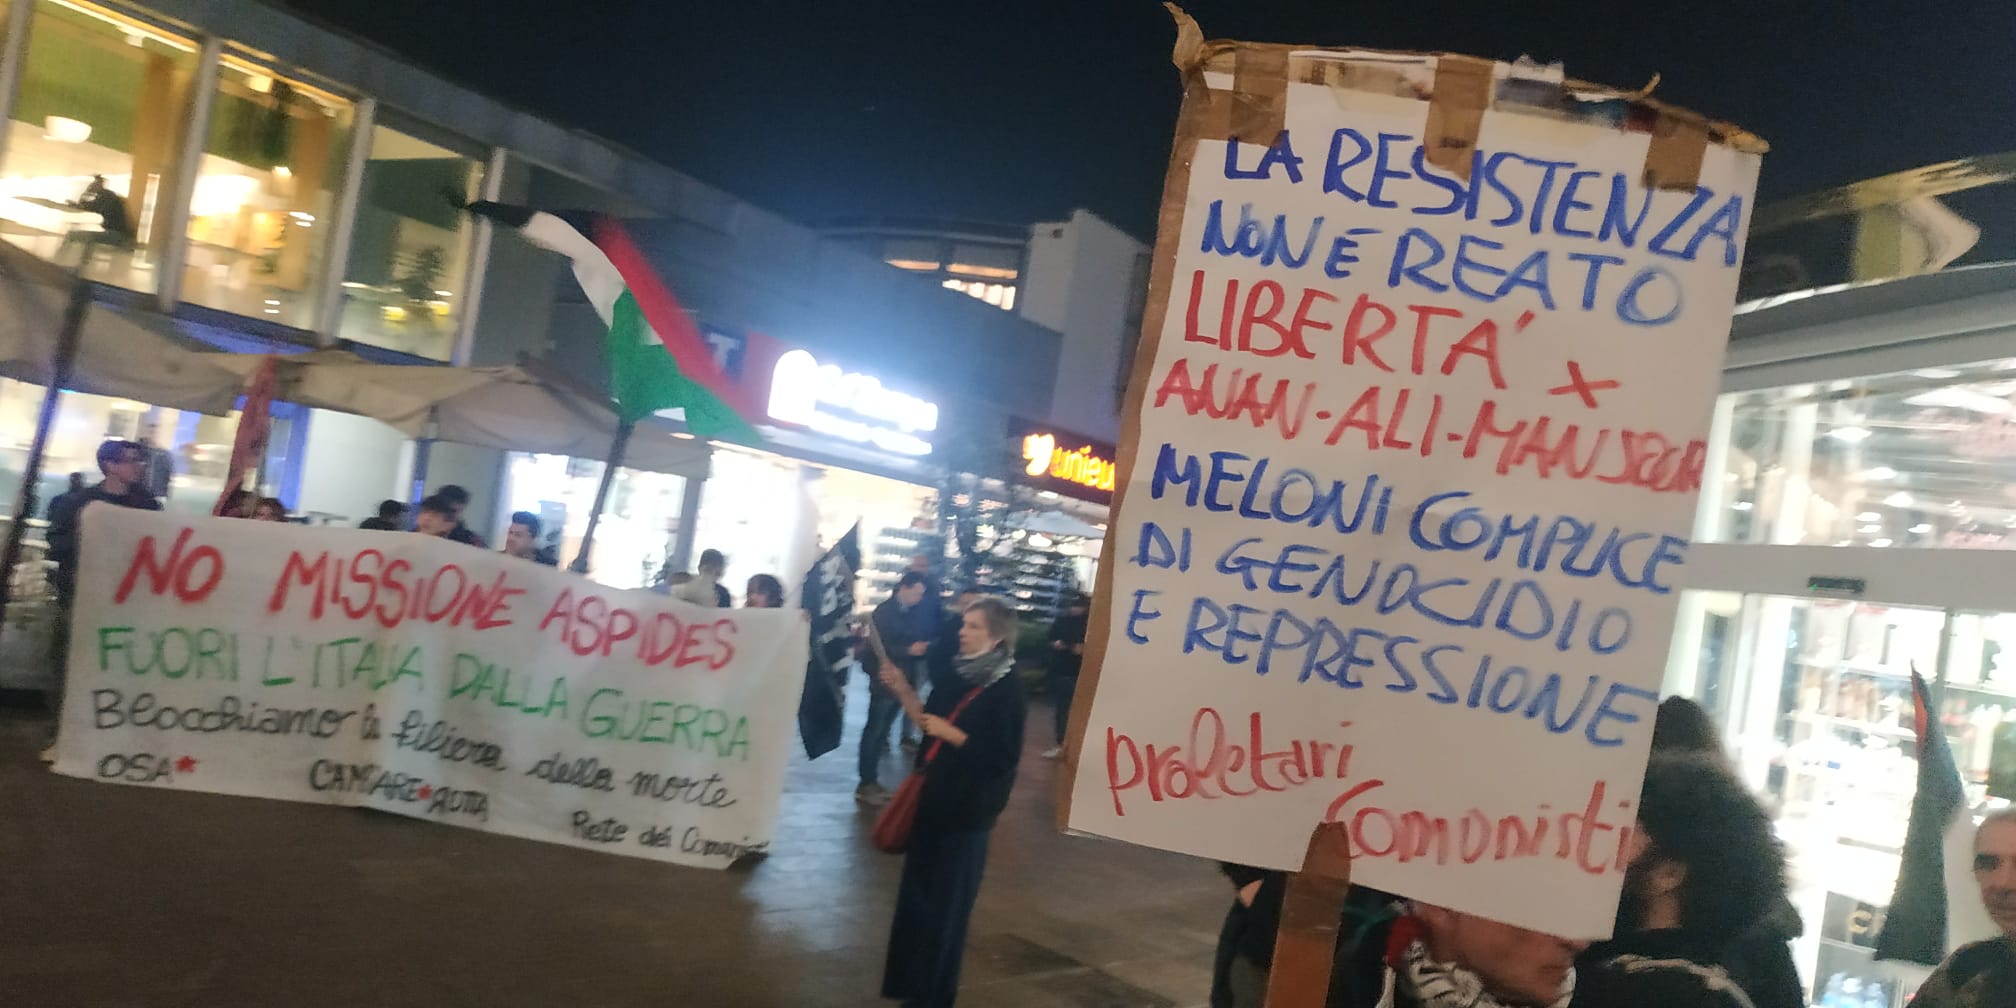 NO MISSIONE ASPIDES
FUORI L'ITALIA DALLA GUERRA
Blocchiamo la filiera della morte
OSA*
CAMBIARE*ROTTA
Rete dei Comunisti
LA RESISTENZA
NON È REATO
LIBERTA' x
ANAN-ALI-MANSOUR
MELONI COMPLICE
DI GENOCIDIO
E REPRESSIONE
proletari
Comunisti